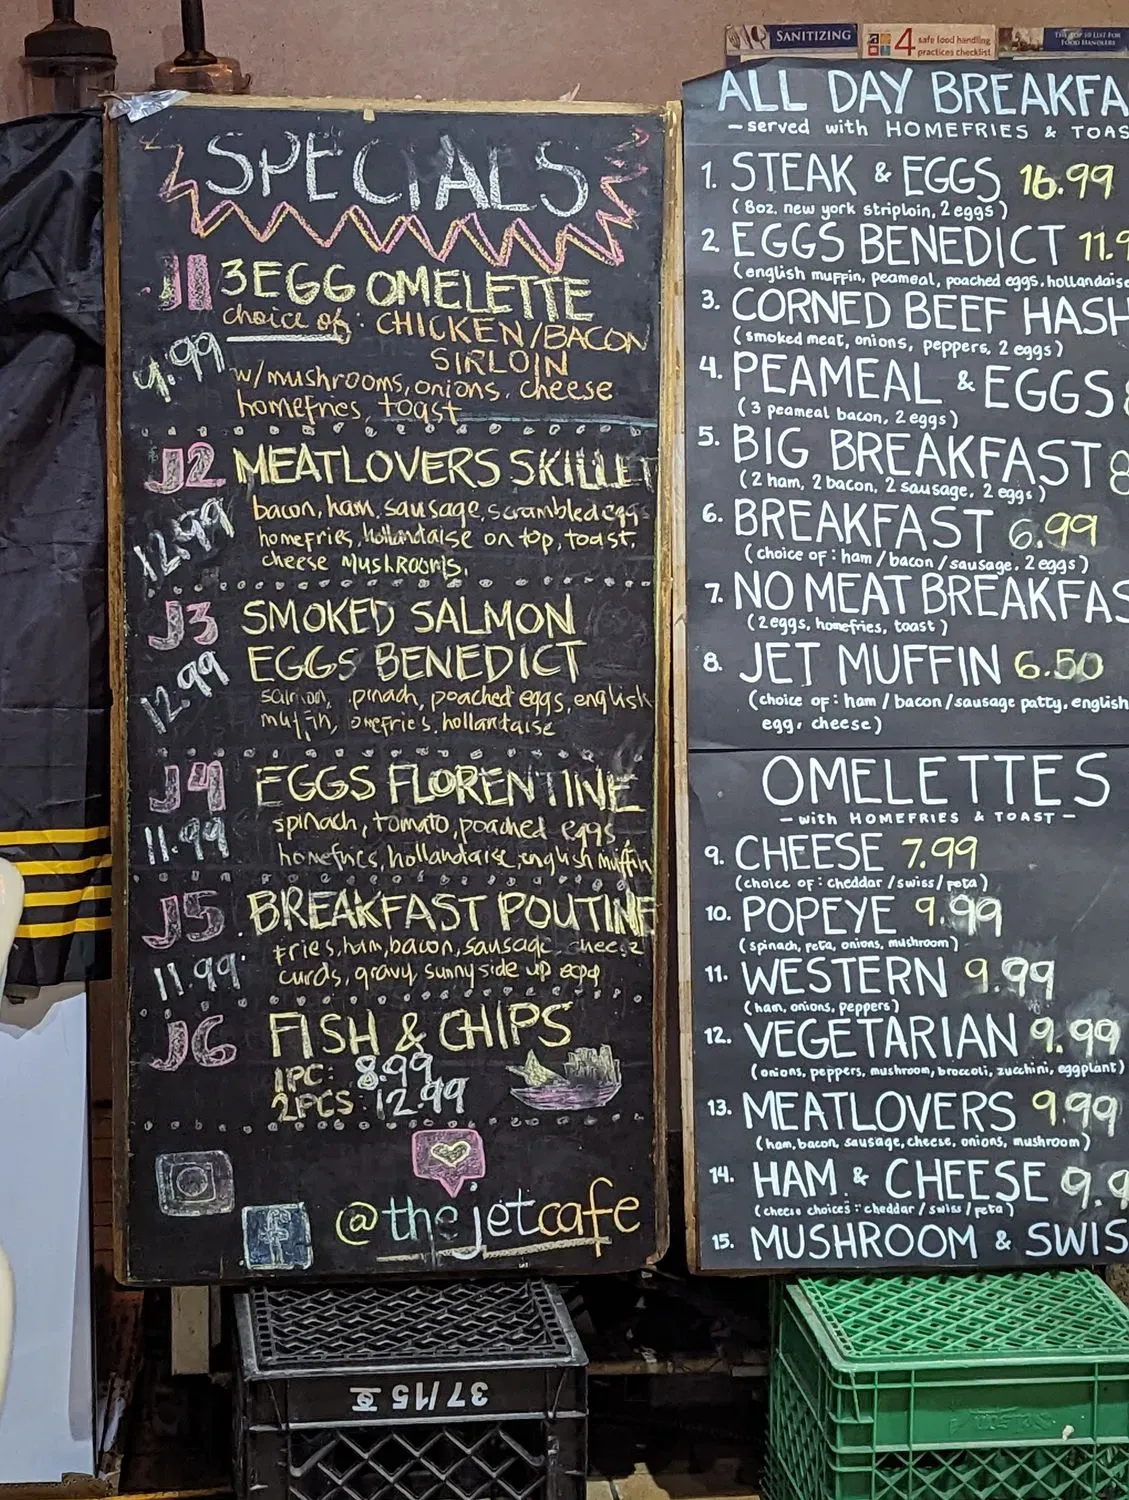 SANITIZING
4 safe food handling
practices checklist
THE TOP 10 LIST FOR
FOOD HANDLERS
SPECIALS
J1 3 EGG OMELETTE
choice of: CHICKEN/BACON
SIRLOIN
9.99
w/mushrooms, onions, cheese
homefries, toast
J2 MEATLOVERS SKILLET
12.99
bacon, ham, sausage, scrambled eggs
homefries, hollandaise on top, toast,
cheese MUSHROOMS.
J3 SMOKED SALMON
EGGS BENEDICT
12.99
salmon, pinach, poached eggs, english
muffin, omefries, hollandaise
J4 EGGS FLORENTINE
11.99
spinach, tomato, poached eggs
homefries, hollandaise, english muffin
J5 BREAKFAST POUTINE
11.99
fries, ham, bacon, sausage, cheese
curds, gravy sunny side up egg
J6 FISH & CHIPS
1PC: 8.99
2PCS: 12.99
@thejetcafe
ALL DAY BREAKFA
- served with HOMEFRIES & TOAS
1. STEAK & EGGS 16.99
(8oz. new york striploin, 2 eggs)
2. EGGS BENEDICT 11.9
(english muffin, peameal, poached eggs, hollandaise
3. CORNED BEEF HASH
(smoked meat, onions, peppers, 2 eggs)
4. PEAMEAL & EGGS
(3 peameal bacon, 2 eggs)
5. BIG BREAKFAST 8
(2 ham, 2 bacon, 2 sausage, 2 eggs)
6. BREAKFAST 6.99
(choice of: ham / bacon / sausage, 2 eggs)
7. NO MEAT BREAKFAS
(2 eggs, homefries, toast)
8. JET MUFFIN 6.50
(choice of: ham / bacon / sausage patty, english
egg, cheese)
OMELETTES
- with HOMEFRIES & TOAST -
9. CHEESE 7.99
(choice of: cheddar / swiss / feta)
10. POPEYE 9.99
(spinach, feta, onions, mushroom)
11. WESTERN 9.99
(ham, onions, peppers)
12. VEGETARIAN 9.99
(onions, peppers, mushroom, broccoli, zucchini, eggplant)
13. MEATLOVERS 9.99
(ham, bacon, sausage, cheese, onions, mushroom)
14. HAM & CHEESE 9.9
(cheese choices: cheddar / swiss / feta)
15. MUSHROOM & SWIS
37/15